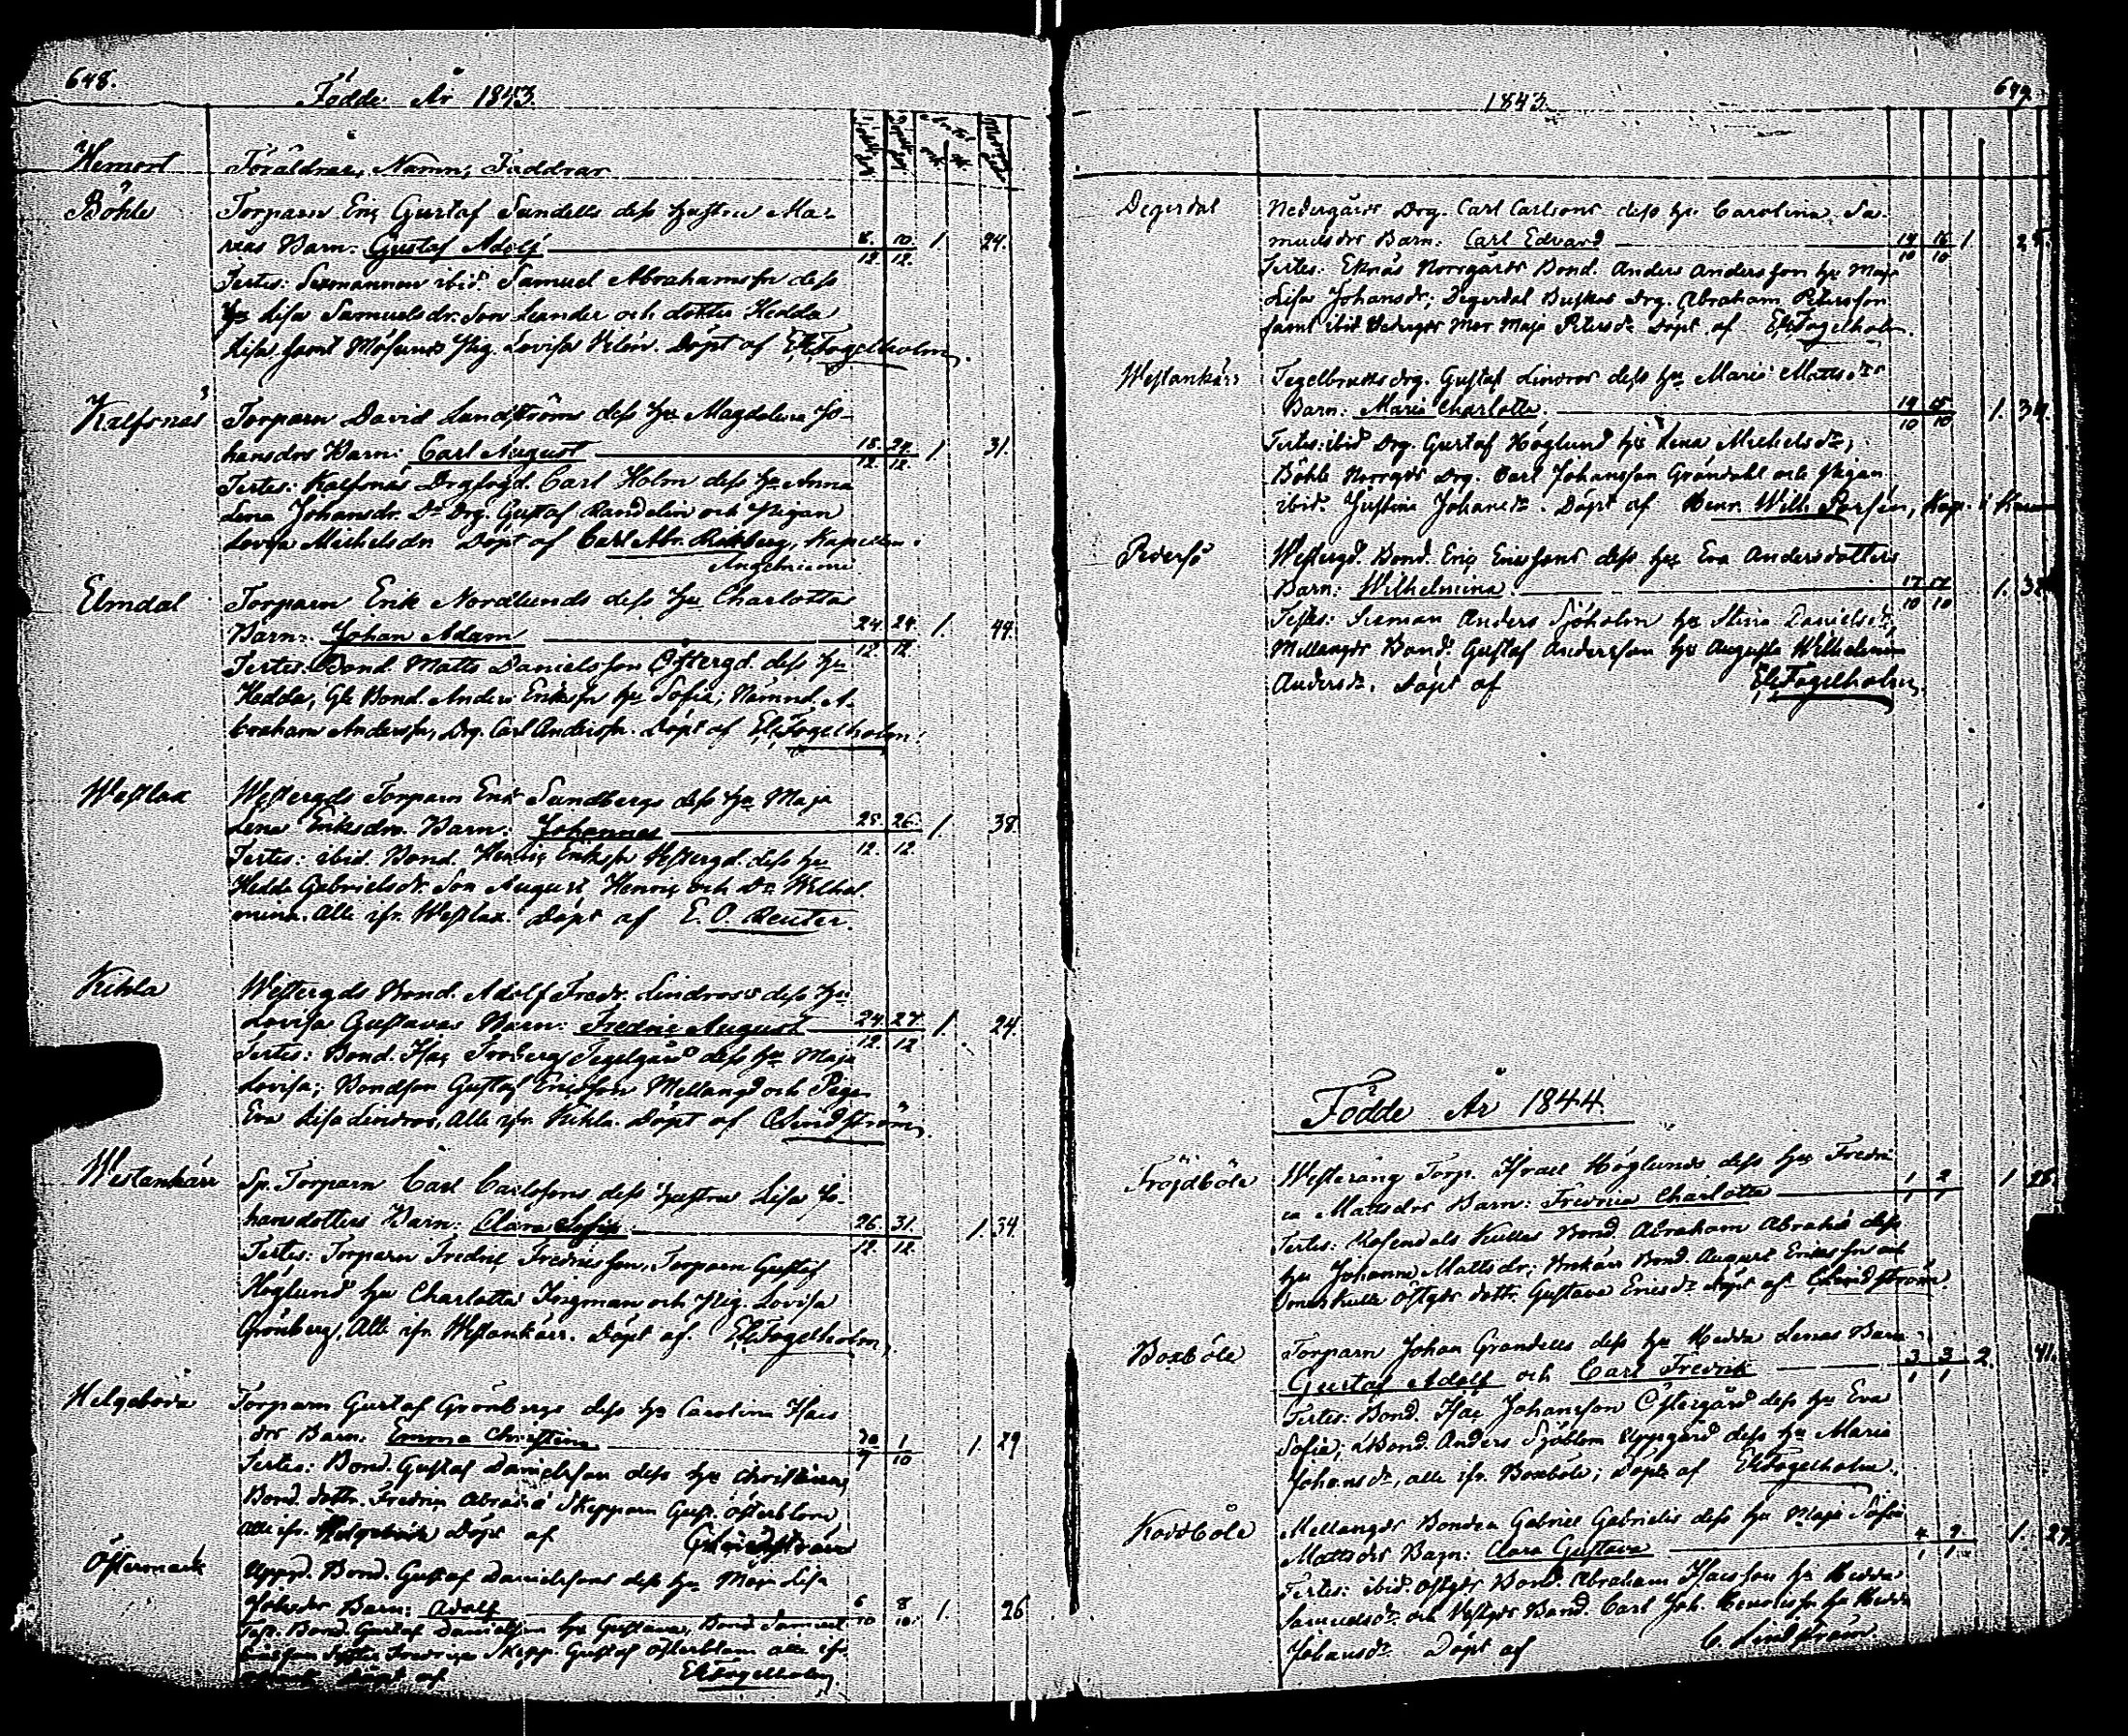 648.
Födde År 1843.
Hemort Föräldrar, Namn, Faddrar
Böhle Torparn Eriç Gustaf Sundells dess hustru Ma-
rias Barn: Gustaf Adolf 8. 10. 1. 24.
12. 12.
Testes: Sexmannen ibid. Samuel Abrahamsson dess
hu Lisa Samuelsdr. Son Leander och dotter Hedda
Lisa samt Pig. Lovisa Döpt af Fogelholm.
Kalfsnäs Torparn David Lundströms dess hu Magdalena Jo-
hansdrs Barn: Carl August 18. 24. 1 31.
12. 12.
Testes: Kalfsnäs Drgfogd. Carl Holm dess hu Anna
Lena Johansdr. Do Drg. Gustaf Randelin och Pigan
Lovisa Michelsdr Döpt af Carl Abr. Kapellan i
Angelniemi
Elmdal Torparn Erik Nordlunds dess hu Charlottas
Barn: Johan Adam 24. 29. 1. 44.
12. 12
Testes: Bond. Matts Danielsson Östergd. dess hu
Hedda, Gle Bond. Anders Eriksson hu Sofia; Nämnd. A-
braham Andersson, Drg. Carl Anderssn. Döpt af Fogelholm.
Westlax Westergds Torparn Erik Sundbergs dess hu Maja
Lena Eriksdrs Barn: Johannes 25. 26. 1. 38.
12. 12.
Testes: ibid. Bond. Henriç Erikssn Westergd. dess hu
Hedda Gabrielsdr. Son August Henriç och Dr Wilhel
mina. Alle ifr. Westlax. Döpt af E. O. Reuter.
Kihla Westergds Bond. Adolf Fredr. Lindroos dess hu
Lovisa Gustavas Barn: Fredriç August 24. 27. 1. 24.
12. 12
Testes: Bond. Isaç Froberg Tegelgård dess hu Maja
Lovisa; Bondson Gustaf Ericsson Mellangd och Piga
Eva Lisa Lindroos, Alle ifr. Kihla. Döpt af C Lindström.
Westankärr Sp. Torparn Carl Carlssons dess hustru Lisa Jo-
hansdotters Barn: Clara Sofia 26. 31. 1. 34
12. 12.
Testes: Torparn Fredriç Fredricsson, Torparn Gustaf
Höglund hu Charlotta och Pig. Lovisa
Grönberg, Alle ifr. Westankärr. Döpt af. Fogelholm.
Helgeboda Torparn Gustaf Grönbergs dess hu Carolina Isacs
drs Barn: Emma Christina 30 1 1. 29
9 10
Testes: Bond. Gustaf Danielsson dess hu Christina,
Bond. dottr. Fredrica Skepparn Gust. Österblom
Alle ifr. Döpt af C Lindström
Östermark Uppd. Bond. Gustaf Danielssons dess hu Maja Lisa
Barn: Adolf 6 8 1. 26
10 10.
Test. Bond. Gustaf Danielsson hu Gustava, Bond Samuel
Fredrica Skepp. Gustaf Österblom alle ifr.
Döpt af Fogelholm.
649.
1843.
Degerdal Nedergårds Drg. Carl Carlsons dess hu Carolina Sa-
muelsdrs Barn: Carl Edvard 14 16 1
10 10
Testes: Eknäs Norrgårds Bond. Anders Andersson hu Maja
Lisa Johansdr; Degerdal Drg. Abraham Petersson
samt ibid Maja Petersdr Döpt af Fogelholm.
Westankärr Tegelbruks drg. Gustaf Lindroos dess hu Maria Mattsdrs
Barn: Maria Charlotta. 14 15 1. 34.
10 10
Testes: ibid Drg. Gustaf Höglund hu Lena Michelsdr;
Böhle Norrgds Drg. Carl Johansson Grandahl och Pigan
ibid. Justina Johansdr. Döpt af Henr. Wilh. Kap. i
Pedersö Westergd. Bond. Eriç Ericssons dess hu Eva Andersdotters
Barn: Wilhelmina. 17 1. 32
10 10
Testes: Anders Sjöholm hu Stina Danielsdr,
Mellangds Bond. Gustaf Andersson hu Augusta Wilhelmina
Andersdr. Döpt af Fogelholm.
Födde År 1844.
Fröjdböle Westeräng Torp. Israel Höglunds dess hu Fredri
ca Mattsdrs Barn: Fredrica Charlotta 1 2 1
1 1
Testes: Rosendals Kullas Bond. Abraham dess
hu Johanna Mattsdr; Bond. August Ericsson och
Kulla Östgds dottr. Gustava Ericsdr döpt af C Lindström.
Boxböle Torparn Johan Grandells dess hu Hedda Lenas Barn
Gustaf Adolf och Carl Fredrik 3 3 2. 41.
1 1
Testes: Bond. Isaç Johansson Östergård dess hu Eva
Sofia; Bond. Anders Sjöblom Uppgård dess hu Maria
Johansdr, alle ifr. Boxböle; Döpte af Fogelholm.
Koddböle Mellangds Bonden Gabriel Gabriels dess hu Maja Sofia
Mattsdrs Barn: Clara Gustava 4 7 1. 27
1 1
Testes: ibid. Östgds Bond. Abraham Isacsson hu Hedda
Samuelsdr och Westgds Bond. Carl Joh. hu Hedda
Johansdr Döpt af C. Lindström.